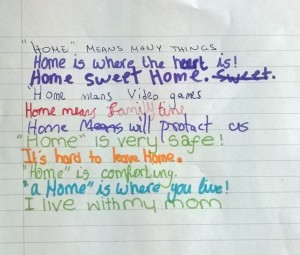 "HOME" MEANS MANY THINGS
Home is where the heart is!
Home sweet Home. Sweet.
"Home means Video games
Home means family time
Home Means will protect us
"Home" is very safe!
It's hard to leave Home.
"Home" is comforting.
"a Home" is where you live!
I live with my mom